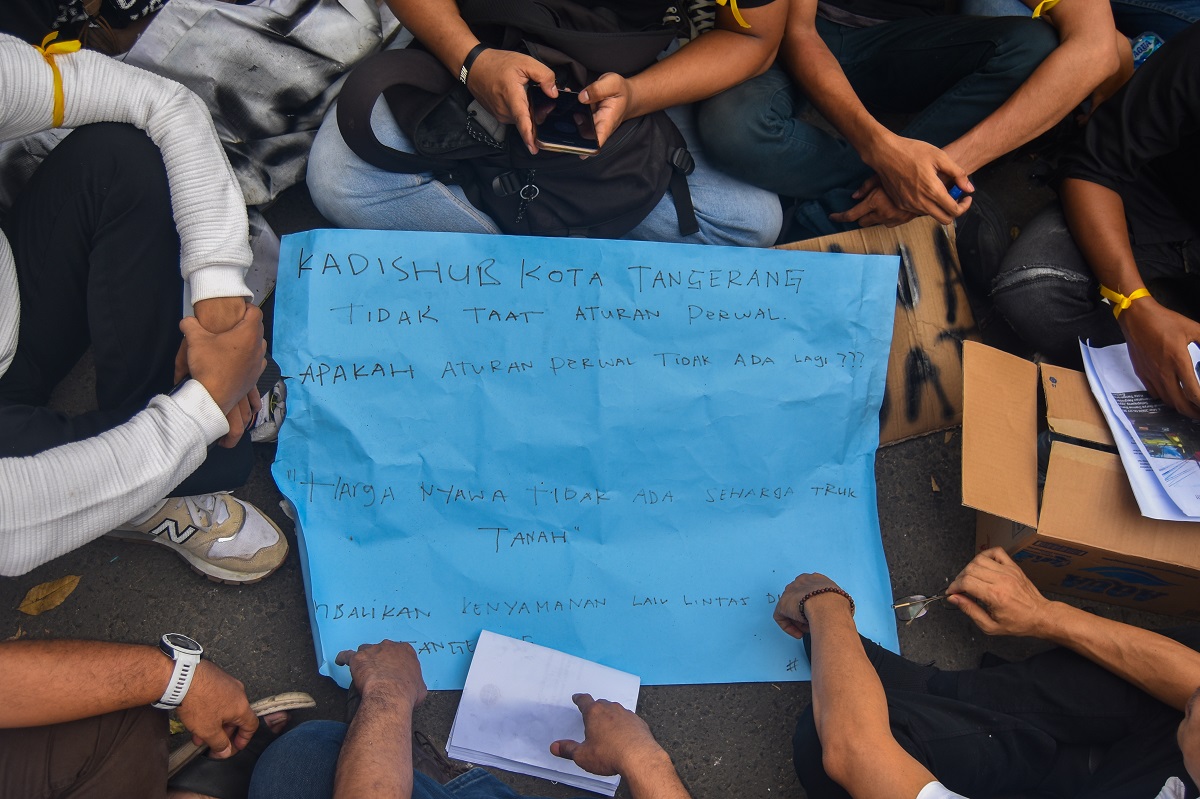 KADISHUB KOTA TANGERANG
TIDAK TAAT ATURAN PERWAL.
- APAKAH ATURAN PERWAL TIDAK ADA LAGI???
"HARGA NYAWA TIDAK ADA SEHARGA TRUK
TANAH"
MBALIKAN KENYAMANAN LALU LINTAS DI
TANGE
#
AQUA
N